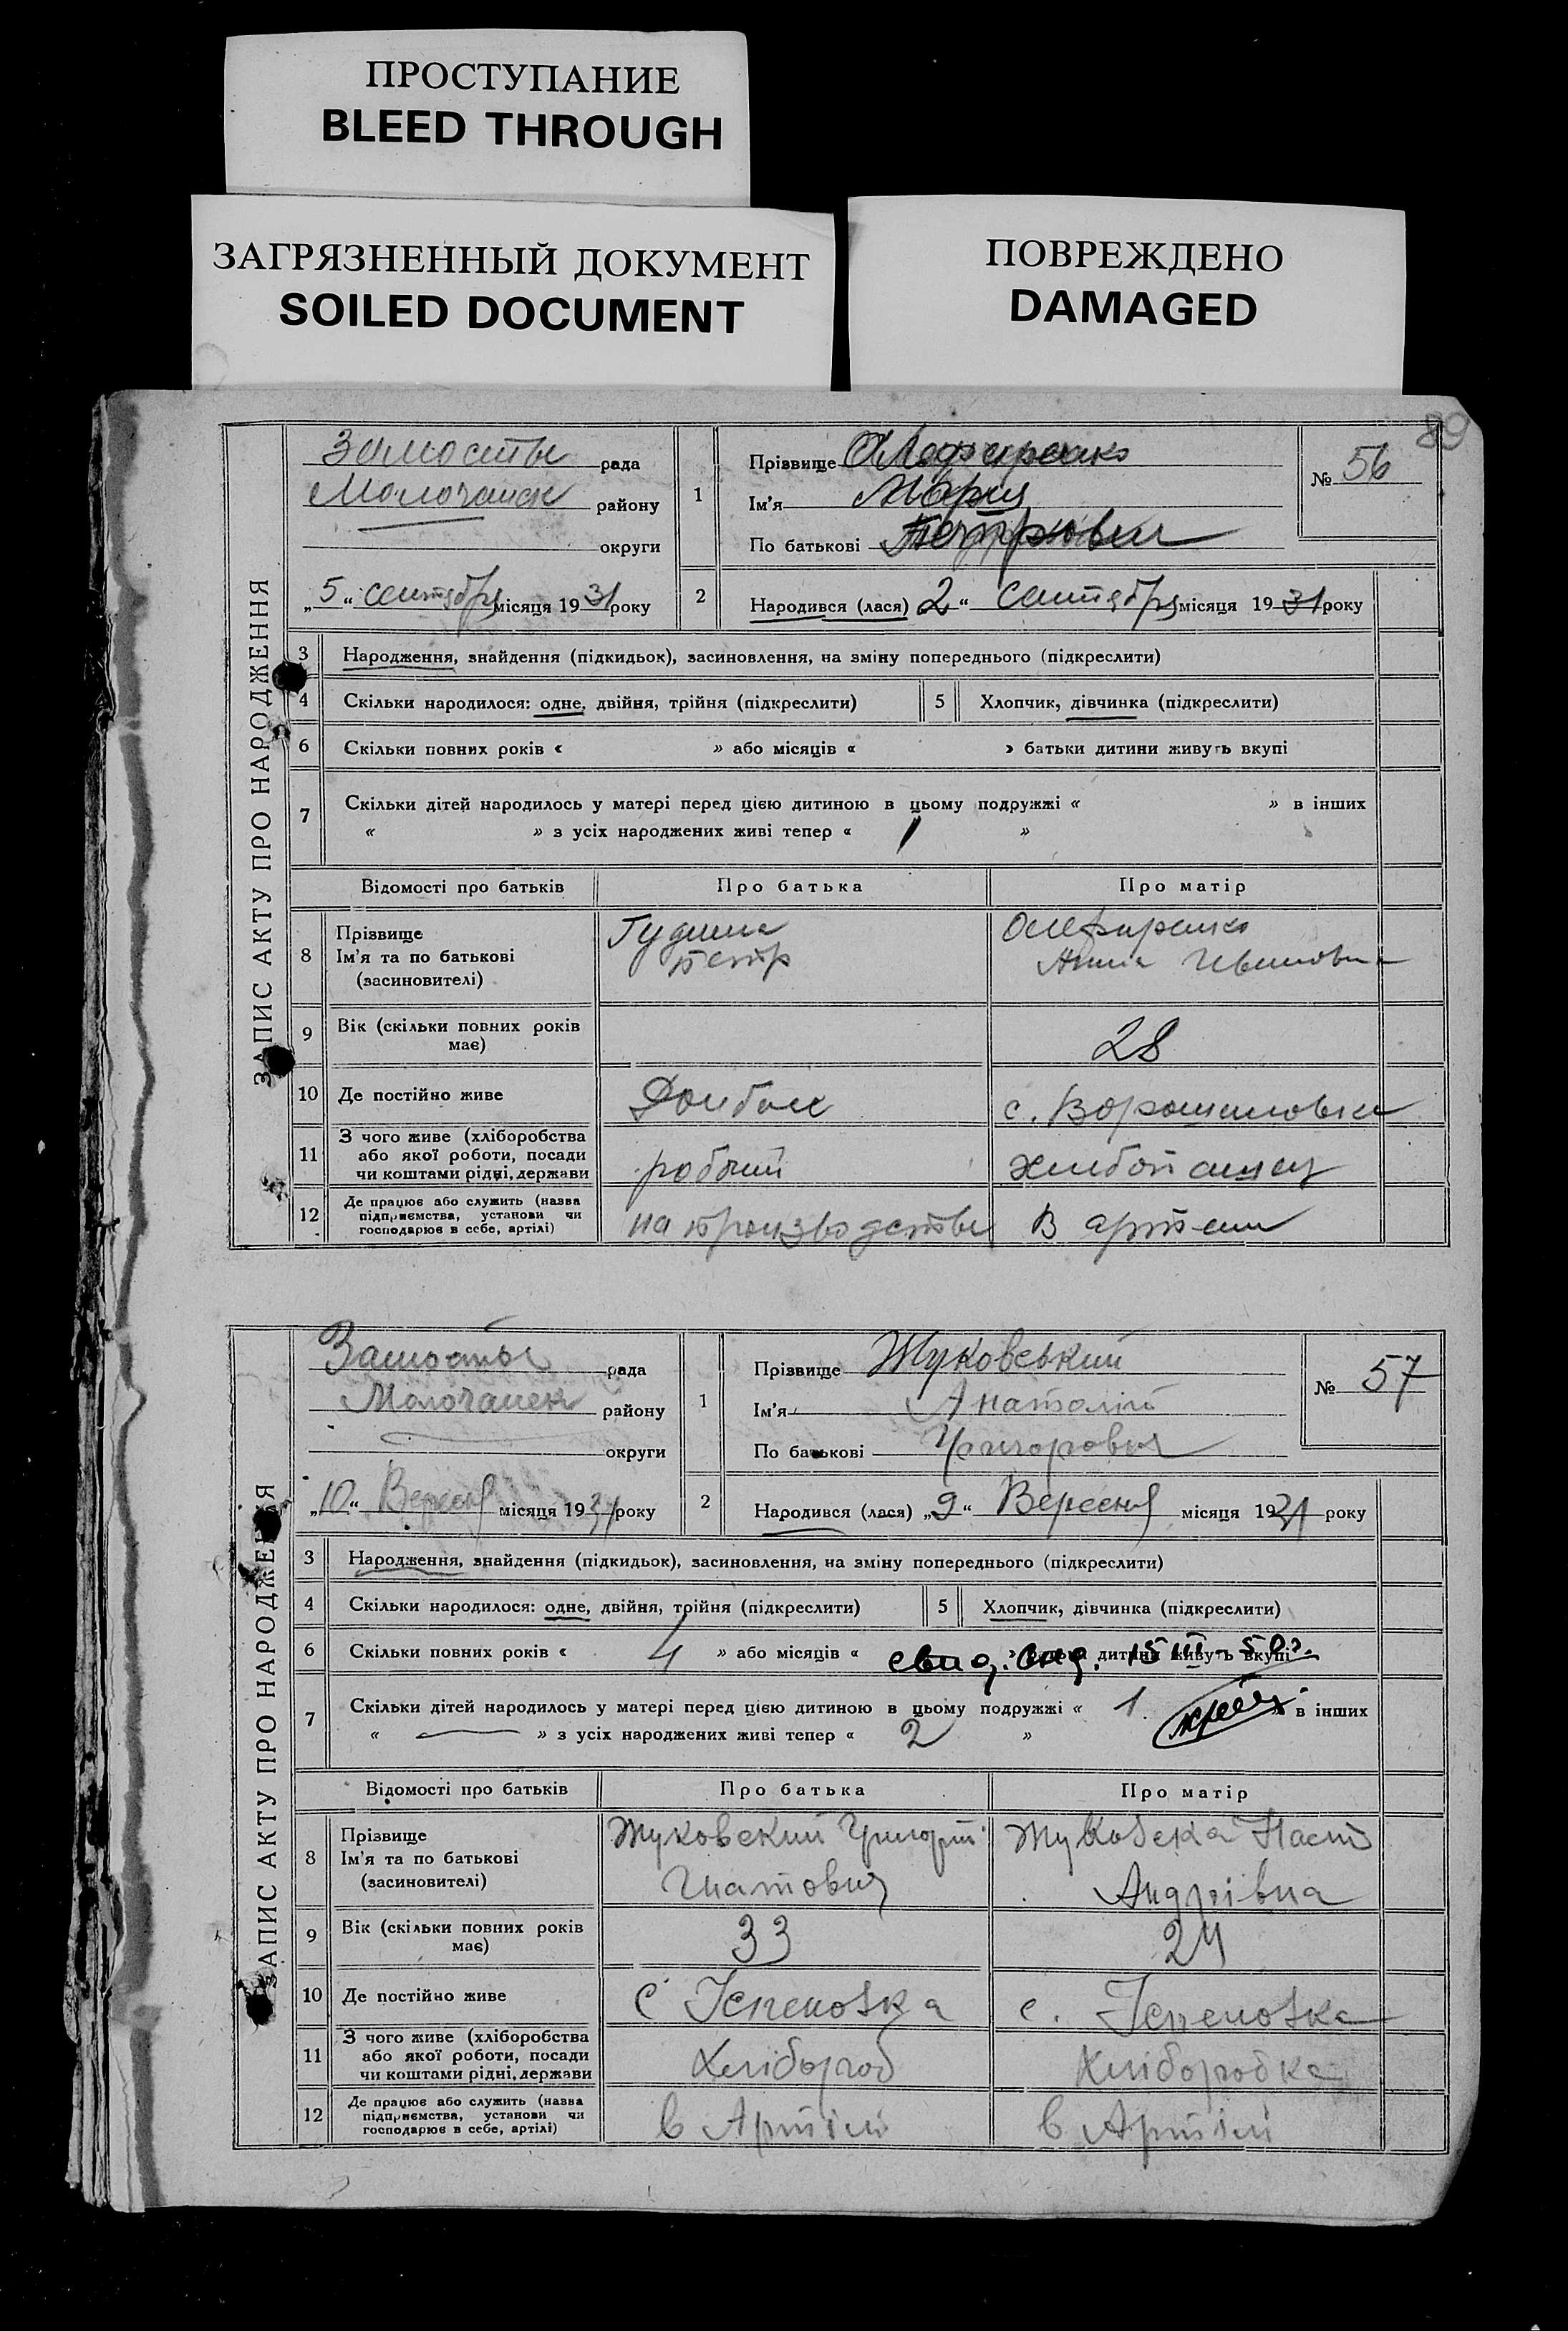 ПРОСТУПАНИЕ
BLEED THROUGH
ЗАГРЯЗНЕННЫЙ ДОКУМЕНТ
SOILED DOCUMENT
ПОВРЕЖДЕНО
DAMAGED
89
ЗАПИС АКТУ ПРО НАРОДЖЕННЯ
рада
Молочанск району
округи
„5“ сентября місяця 1931 року
1
Прізвище
Ім'я Мария
По батькові Петровна
№ 56
2
Народився (лася) 2“ сентября місяця 1931 року
3 Народження, знайдення (підкидьок), засиновлення, на зміну попереднього (підкреслити)
4 Скільки народилося: одне, двійня, трійня (підкреслити) 5 Хлопчик, дівчинка (підкреслити)
6 Скільки повних років « » або місяців « » батьки дитини живуть вкупі
7 Скільки дітей народилось у матері перед цією дитиною в цьому подружжі « » в інших
« » з усіх народжених живі тепер « 1 »
Відомості про батьків Про батька Про матір
8 Прізвище
Ім'я та по батькові
(засиновителі)
Петр
Анна Ивановна
9 Вік (скільки повних років має) 28
10 Де постійно живе Донбас с. Ворошиловка
11 З чого живе (хліборобства
або якої роботи, посади
чи коштами рідні, держави
робочий
12 Де працює або служить (назва
підприємства, установи чи
господарює в себе, артілі)
на производстве В артели
ЗАПИС АКТУ ПРО НАРОДЖЕННЯ
рада
Молочанск району
округи
„10“ Вересня місяця 1931 року
1
Прізвище Жуковський
Ім'я Анатолій
По батькові
№ 57
2
Народився (лася) „9“ Вересня місяця 1931 року
3 Народження, знайдення (підкидьок), засиновлення, на зміну попереднього (підкреслити)
4 Скільки народилося: одне, двійня, трійня (підкреслити) 5 Хлопчик, дівчинка (підкреслити)
6 Скільки повних років « 4 » або місяців « » батьки дитини живуть вкупі
свид. выд. 15 III - 50 г.
7 Скільки дітей народилось у матері перед цією дитиною в цьому подружжі « 1 » в інших
« — » з усіх народжених живі тепер « 2 »
Відомості про батьків Про батька Про матір
8 Прізвище
Ім'я та по батькові
(засиновителі)
Жуковский Григорій
Гнатович
Жуковска Наст
Андрівна
9 Вік (скільки повних років має) 33 24
10 Де постійно живе
11 З чого живе (хліборобства
або якої роботи, посади
чи коштами рідні, держави
Хлібороб Хліборобка
12 Де працює або служить (назва
підприємства, установи чи
господарює в себе, артілі)
в Артілі в Артілі